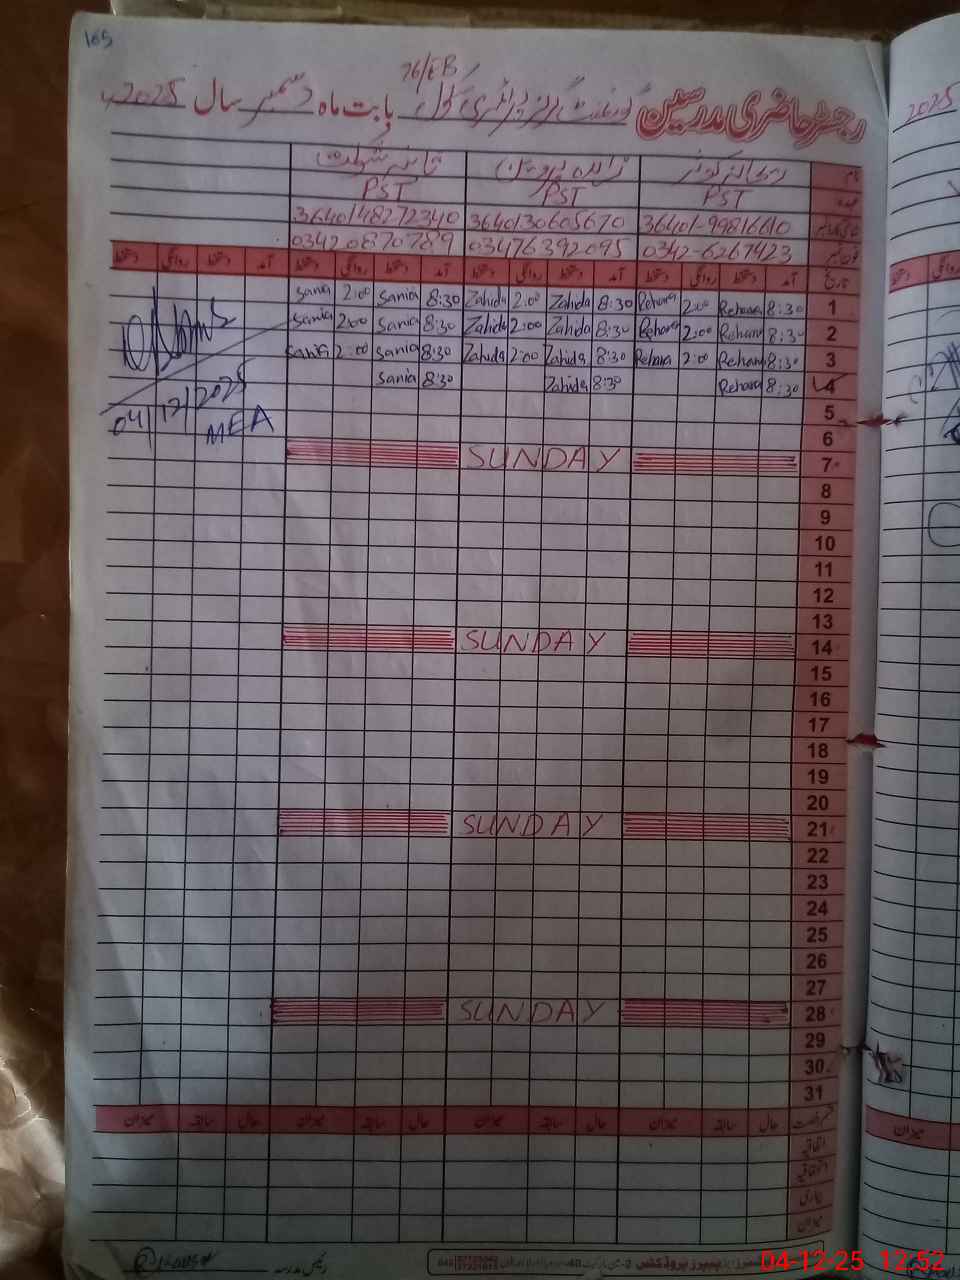 165
76/EB
رجسٹر حاضری مدرسین گورنمنٹ گرلز پرائمری سکول بابت ماہ دسمبر سال 2025
نام
PST PST PST
36401-99816610 3640130605670 3640148272340
0342-6267423 03476392095 03420870789
تاریخ آمد دستخط روانگی دستخط آمد دستخط روانگی دستخط آمد دستخط روانگی دستخط آمد دستخط روانگی دستخط
1 8:30 Rehana 2:00 Rehana 8:30 Zahida 2:00 Zahida 8:30 Sania 2:00 Sania
2 8:30 Rehana 2:00 Rehana 8:30 Zahida 2:00 Zahida 8:30 Sania 2:00 Sania
3 8:30 Rehana 2:00 Rehana 8:30 Zahida 2:00 Zahida 8:30 Sania 2:00 Sania
4 8:30 Rehana 8:30 Zahida 8:30 Sania
04/12/2025
MEA
5
6
7 SUNDAY
8
9
10
11
12
13
14 SUNDAY
15
16
17
18
19
20
21 SUNDAY
22
23
24
25
26
27
28 SUNDAY
29
30
31
حال سابقہ میزان حال سابقہ میزان حال سابقہ میزان حال سابقہ میزان
اتفاقیہ
بیماری
میزان
رئیس مدرسہ
2025
دستخط
روانگی
میزان
04-12-25 12:52